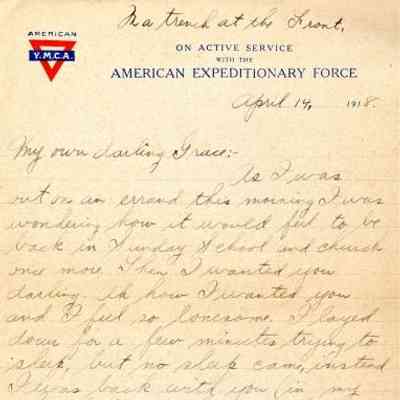 In a trench at the Front,
AMERICAN
Y.M.C.A.
ON ACTIVE SERVICE
WITH THE
AMERICAN EXPEDITIONARY FORCE
April 14, 1918.
My own darling Grace;-
As I was
out on an errand this morning I was
wondering how it would feel to be
back in Sunday School and church
once more. Then I wanted you
darling. Oh how I wanted you
and I feel so lonesome. I layed
down for a few minutes trying to
sleep, but no sleep came, instead
I was back with you (in my